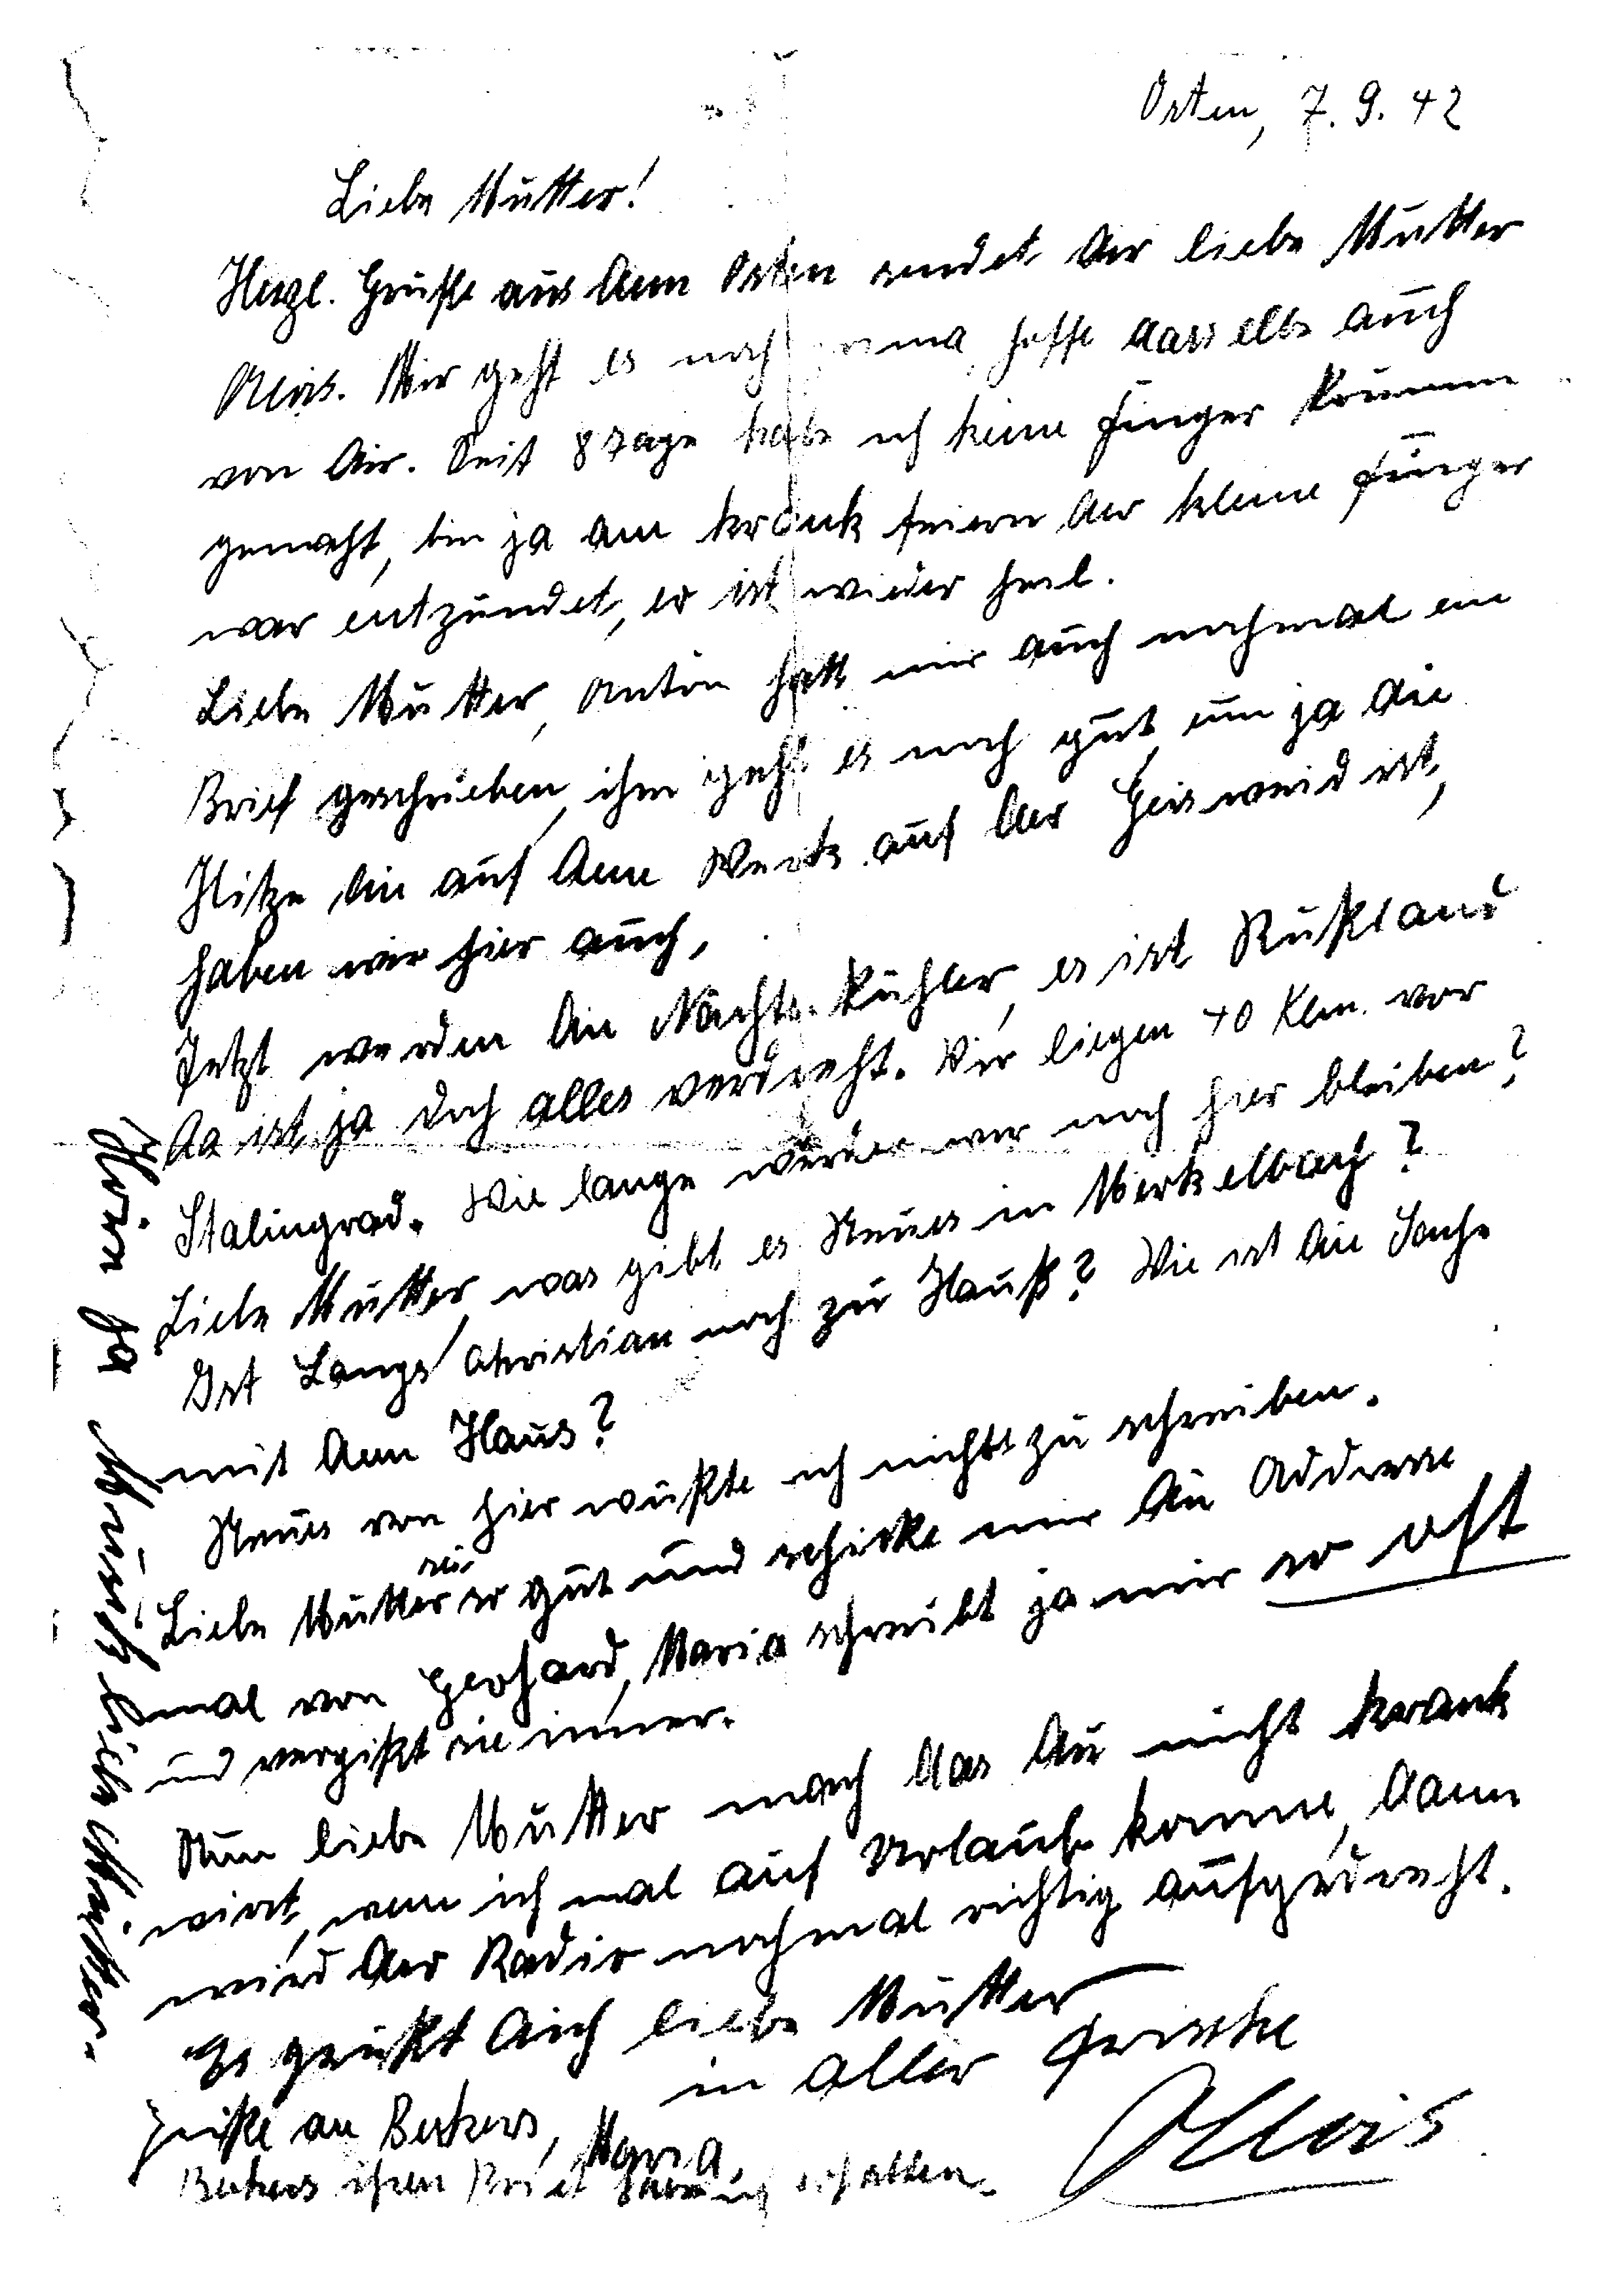 Osten, 7. 9. 42
Liebe Mutter!
Herzl. Grüße aus dem Osten sendet der liebe Mutter
Alois. Mir geht es noch prima, hoffe dasselbe auch
von dir. Seit 8 Tage habe ich keine Finger krumm
gemacht, bin ja am krank feiern der kleine Finger
war entzündet, er ist wieder heil.
Liebe Mutter, Anton hatt mir auch nochmal ein
Brief geschrieben, ihm geht es noch gut, um ja die
Hitze die auf dem Werk auf der Geisweid ist,
haben wir hier auch,
Jetzt werden die Nächte kühler, es ist Rußland
da ist ja doch alles verdreht. Wir liegen 40 Klm. vor
Stalingrad. Wie lange werden wir noch hier bleiben?
Liebe Mutter, was gibt es Neues in Merkelbach?
Ist Langs Christian noch zu Hauß? Wie ist die Sache
mit dem Haus?
Neues von hier wußte ich nicht zu schreiben.
Liebe Mutter sei so gut und schicke mir die Addresse
mal von Gerhard, Maria schreibt ja mir so oft
und vergißt sie immer.
Nun liebe Mutter mach das du nicht krank
wirst, wenn ich mal auf Urlaub komme, dann
wird der Radio nochmal richtig aufgedreht.
Es grüßt dich liebe Mutter
in aller Frische
Alois
Grüße an Beckers, Maria,
Beckers ihren Brief habe ich erhalten.
ja liebe Mutter.